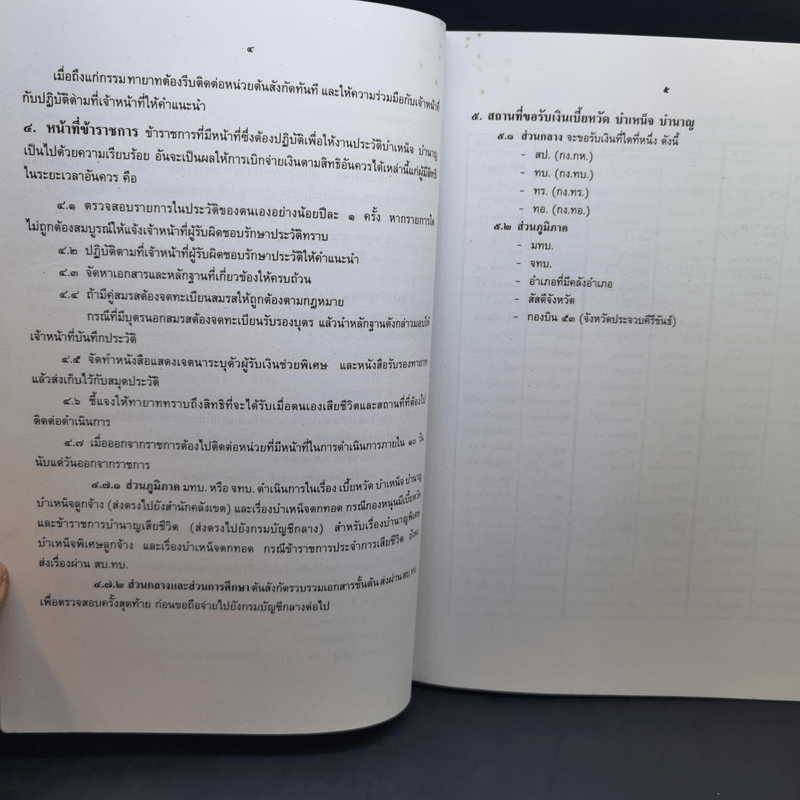 ๔
เมื่อถึงแก่กรรม ทายาทต้องรีบติดต่อหน่วยต้นสังกัดทันที และให้ความร่วมมือกับเจ้าหน้าที่
กับปฏิบัติตามที่เจ้าหน้าที่ให้คำแนะนำ
๔. หน้าที่ข้าราชการ ข้าราชการที่มีหน้าที่ซึ่งต้องปฏิบัติเพื่อให้งานประวัติบำเหน็จ บำนาญ
เป็นไปด้วยความเรียบร้อย อันจะเป็นผลให้การเบิกจ่ายเงินตามสิทธิอันควรได้เหล่านี้แก่ผู้มีสิทธิ
ในระยะเวลาอันควร คือ
๔.๑ ตรวจสอบรายการในประวัติของตนเองอย่างน้อยปีละ ๑ ครั้ง หากรายการใด
ไม่ถูกต้องสมบูรณ์ให้แจ้งเจ้าหน้าที่ผู้รับผิดชอบรักษาประวัติทราบ
๔.๒ ปฏิบัติตามที่เจ้าหน้าที่ผู้รับผิดชอบรักษาประวัติให้คำแนะนำ
๔.๓ จัดหาเอกสารและหลักฐานที่เกี่ยวข้องให้ครบถ้วน
๔.๔ ถ้ามีคู่สมรสต้องจดทะเบียนสมรสให้ถูกต้องตามกฎหมาย
กรณีที่มีบุตรนอกสมรสต้องจดทะเบียนรับรองบุตร แล้วนำหลักฐานดังกล่าวมอบให้
เจ้าหน้าที่บันทึกประวัติ
๔.๕ จัดทำหนังสือแสดงเจตนาระบุตัวผู้รับเงินช่วยพิเศษ และหนังสือรับรองทายาท
แล้วส่งเก็บไว้กับสมุดประวัติ
๔.๖ ชี้แจงให้ทายาททราบถึงสิทธิที่จะได้รับเมื่อตนเองเสียชีวิตและสถานที่ที่ต้องไป
ติดต่อดำเนินการ
๔.๗ เมื่อออกจากราชการต้องไปติดต่อหน่วยที่มีหน้าที่ในการดำเนินการภายใน ๑๐ วัน
นับแต่วันออกจากราชการ
๔.๗.๑ ส่วนภูมิภาค มทบ. หรือ จทบ. ดำเนินการในเรื่อง เบี้ยหวัด บำเหน็จ บำนาญ
บำเหน็จลูกจ้าง (ส่งตรงไปยังสำนักคลังเขต) และเรื่องบำเหน็จตกทอด กรณีกองหนุนมีเบี้ยหวัด
และข้าราชการบำนาญเสียชีวิต (ส่งตรงไปยังกรมบัญชีกลาง) สำหรับเรื่องบำนาญพิเศษ
บำเหน็จพิเศษลูกจ้าง และเรื่องบำเหน็จตกทอด กรณีข้าราชการประจำการเสียชีวิต
ส่งเรื่องผ่าน สบ.ทบ.
๔.๗.๒ ส่วนกลางและส่วนการศึกษา ต้นสังกัดรวบรวมเอกสารชั้นต้น ส่งผ่าน สบ.ทบ.
เพื่อตรวจสอบครั้งสุดท้าย ก่อนขอถือจ่ายไปยังกรมบัญชีกลางต่อไป
๕
๕. สถานที่ขอรับเงินเบี้ยหวัด บำเหน็จ บำนาญ
๕.๑ ส่วนกลาง จะขอรับเงินที่ใดที่หนึ่ง ดังนี้
- สป. (กง.กห.)
- ทบ. (กง.ทบ.)
- ทร. (กง.ทร.)
- ทอ. (กง.ทอ.)
๕.๒ ส่วนภูมิภาค
- มทบ.
- จทบ.
- อำเภอที่มีคลังอำเภอ
- สัสดีจังหวัด
- กองบิน ๕๓ (จังหวัดประจวบคีรีขันธ์)